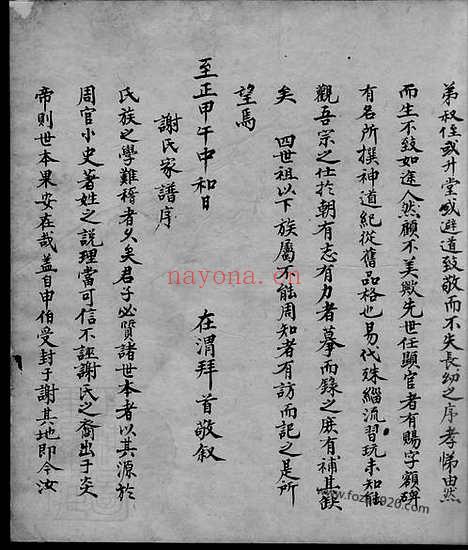 弟叔侄或升堂或避道致敬而不失長幼之序孝悌由然
而生不致如途人然顧不美歟先世任顯官者有賜字額碑
有名所撰神道紀從舊品格也易代殊緇流習玩未知能
觀吾宗之仕於朝有志有力者摹而錄之庶有補其缺
矣 四世祖以下族屬不能周知者有訪而記之是所
望焉
至正甲午中和日 在渭拜首敬叙
謝氏家譜序
氏族之學難稽者久矣君子必質諸世本者以其源於
周官小史著姓之説理當可信不誣謝氏之裔出于炎
帝則世本果安在哉蓋自申伯受封于謝其地即今汝
nayona.cn
www.fozhu920.com